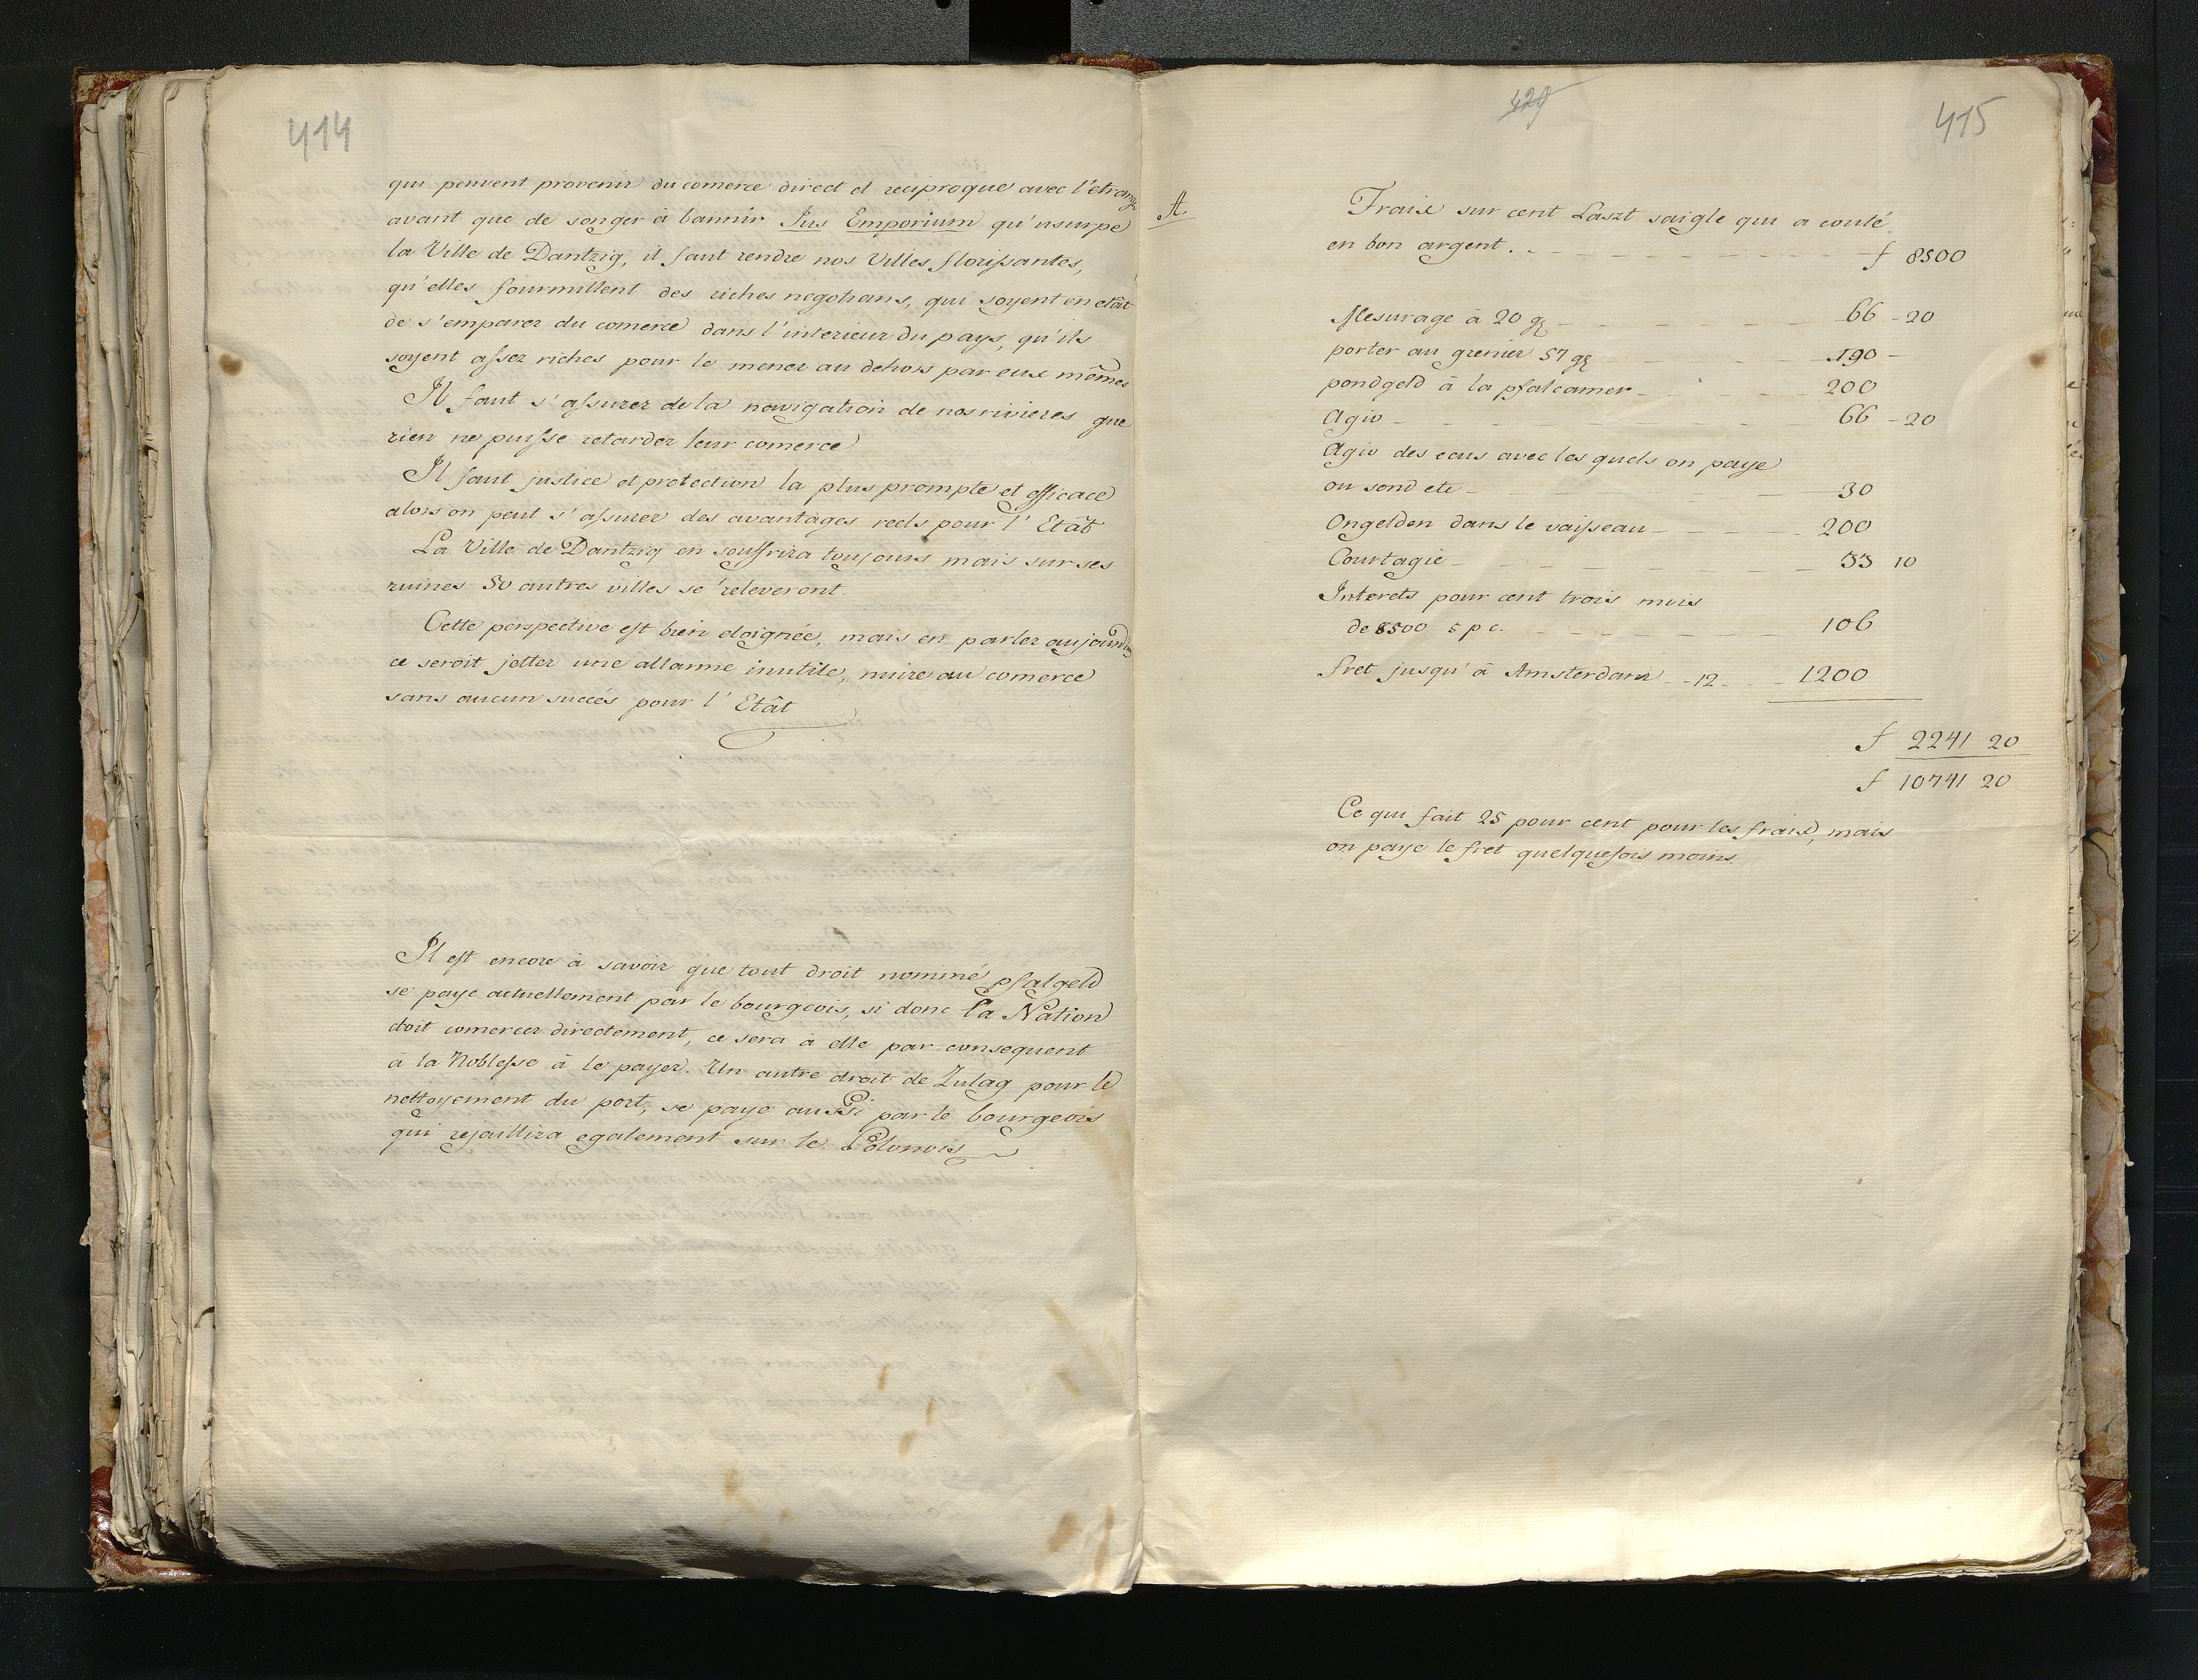 414
qui peuvent provenir du comerce direct et reciproque avec l'etrange
avant que de songer à bannir Jus Emporium qu'usurpe
la Ville de Dantzig, il faut rendre nos Villes florissantes,
qu'elles fourmillent des riches negotians, qui soyent en etât
de s'emparer du comerce dans l'interieur du pays, qu'ils
soyent assez riches pour le mener au dehors par eux mêmes
Il faut s'assurer de la navigation de nos rivieres que
rien ne puisse retarder leur comerce
Il faut justice et protection la plus prompte et efficace
alors on peut s'assurer des avantages reels pour l'Etât
La Ville de Dantzig en souffrira toujours mais sur ses
ruines 50 autres villes se releveront.
Cette perspective est bien eloignée, mais en parler aujourdhuy
ce seroit jetter une allarme inutile, nuire au comerce
sans aucun succés pour l'Etât
Il est encore à savoir que tout droit nominé pfalgeld
se paye actuellement par le bourgeois, si donc la Nation
doit comercer directement, ce sera à elle par consequent
à la Noblesse à le payer. Un autre droit de Zulag pour le
nettoyement du port, se paye aussi par le bourgeois
qui rejaillira egalement sur le Polonois
429
415
A.
Fraix sur cent Laszt saigle qui a couté
en bon argent. f 8500
Mesurage à 20 gr 66 - 20
porter au grenier 57 gr 190 -
pondgeld à la pfalcamer 200
Agio 66 - 20
Agio des ecus avec les quels on paye
ou sond etc 30
Ongelden dans le vaisseau 200
Courtagie 33 10
Interets pour cent trois mois
de 8500 5 p c. 106
fret jusqu'à Amsterdam - 12 1200
f 2241 20
f 10741 20
Ce qui fait 25 pour cent pour les fraix, mais
on paye le fret quelquefois moins.